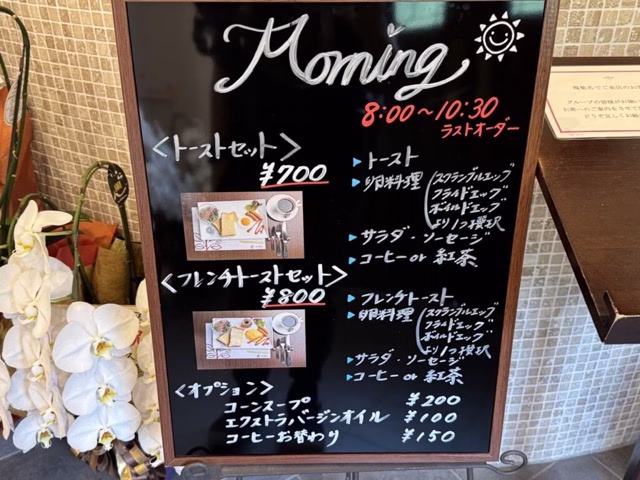 Morning
8:00～10:30
ラストオーダー
＜トーストセット＞
¥700
▸トースト
▸卵料理(スクランブルエッグ
フライドエッグ
ボイルドエッグ
より1つ選択
▸サラダ・ソーセージ
▸コーヒー or 紅茶
＜フレンチトーストセット＞
¥800
▸フレンチトースト
▸卵料理(スクランブルエッグ
フライドエッグ
ボイルドエッグ
より1つ選択
▸サラダ・ソーセージ
▸コーヒー or 紅茶
＜オプション＞
コーンスープ ¥200
エクストラバージンオイル ¥100
コーヒーお替わり ¥150